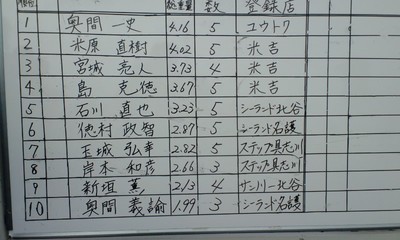 順位 総重量 数 登録店
1 奥間 一史 4.16 5 ユウトク
2 米原 直樹 4.02 5 米吉
3 宮城 亮人 3.73 4 米吉
4 島 克徳 3.67 5 米吉
5 石川 直也 3.23 5 シーランド北谷
6 徳村 政智 2.87 5 シーランド名護
7 玉城 弘幸 2.82 5 ステップ具志川
8 岸本 和彦 2.66 3 ステップ具志川
9 新垣 薫 2.13 4 サンノリー北谷
10 奥間 義諭 1.99 3 シーランド名護